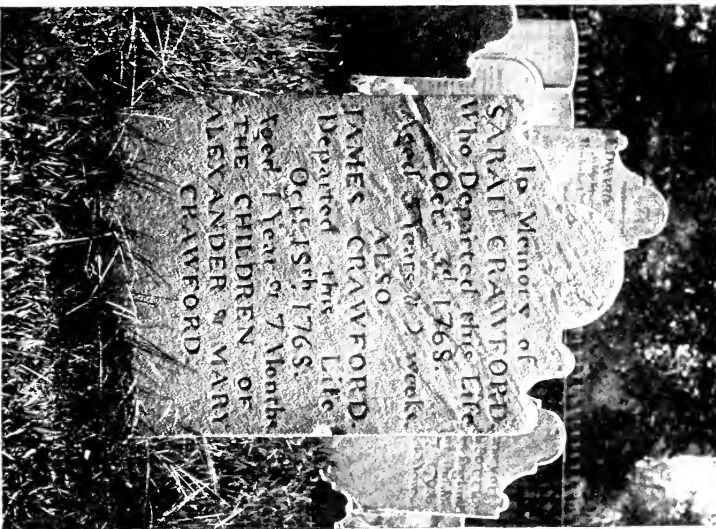 In Memory of
SARAH CRAWFORD
Who Departed this Life
Octr 3d 1768.
Aged 3 Years & 3 weeks
ALSO
JAMES CRAWFORD.
Departed this Life
Oct 15th 1768.
Aged 1 Year & 7 Months
THE CHILDREN OF
ALEXANDER & MARY
CRAWFORD
EDWARD